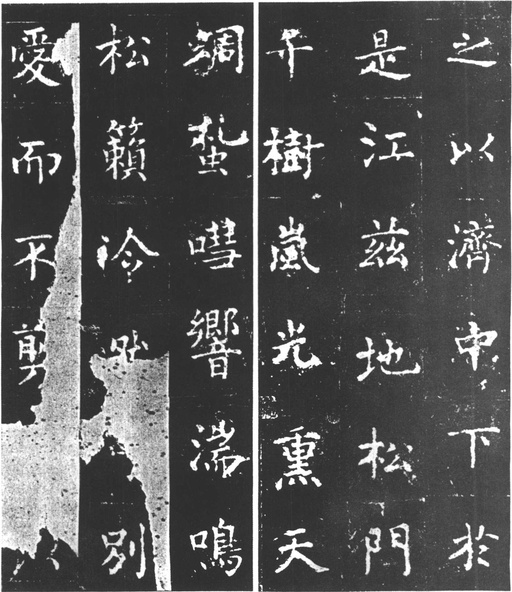 之以濟中下於
是江茲地松門
千樹嵐光熏天
蜩蝨嘒響湍鳴
松籟泠然別
愛而不剪以